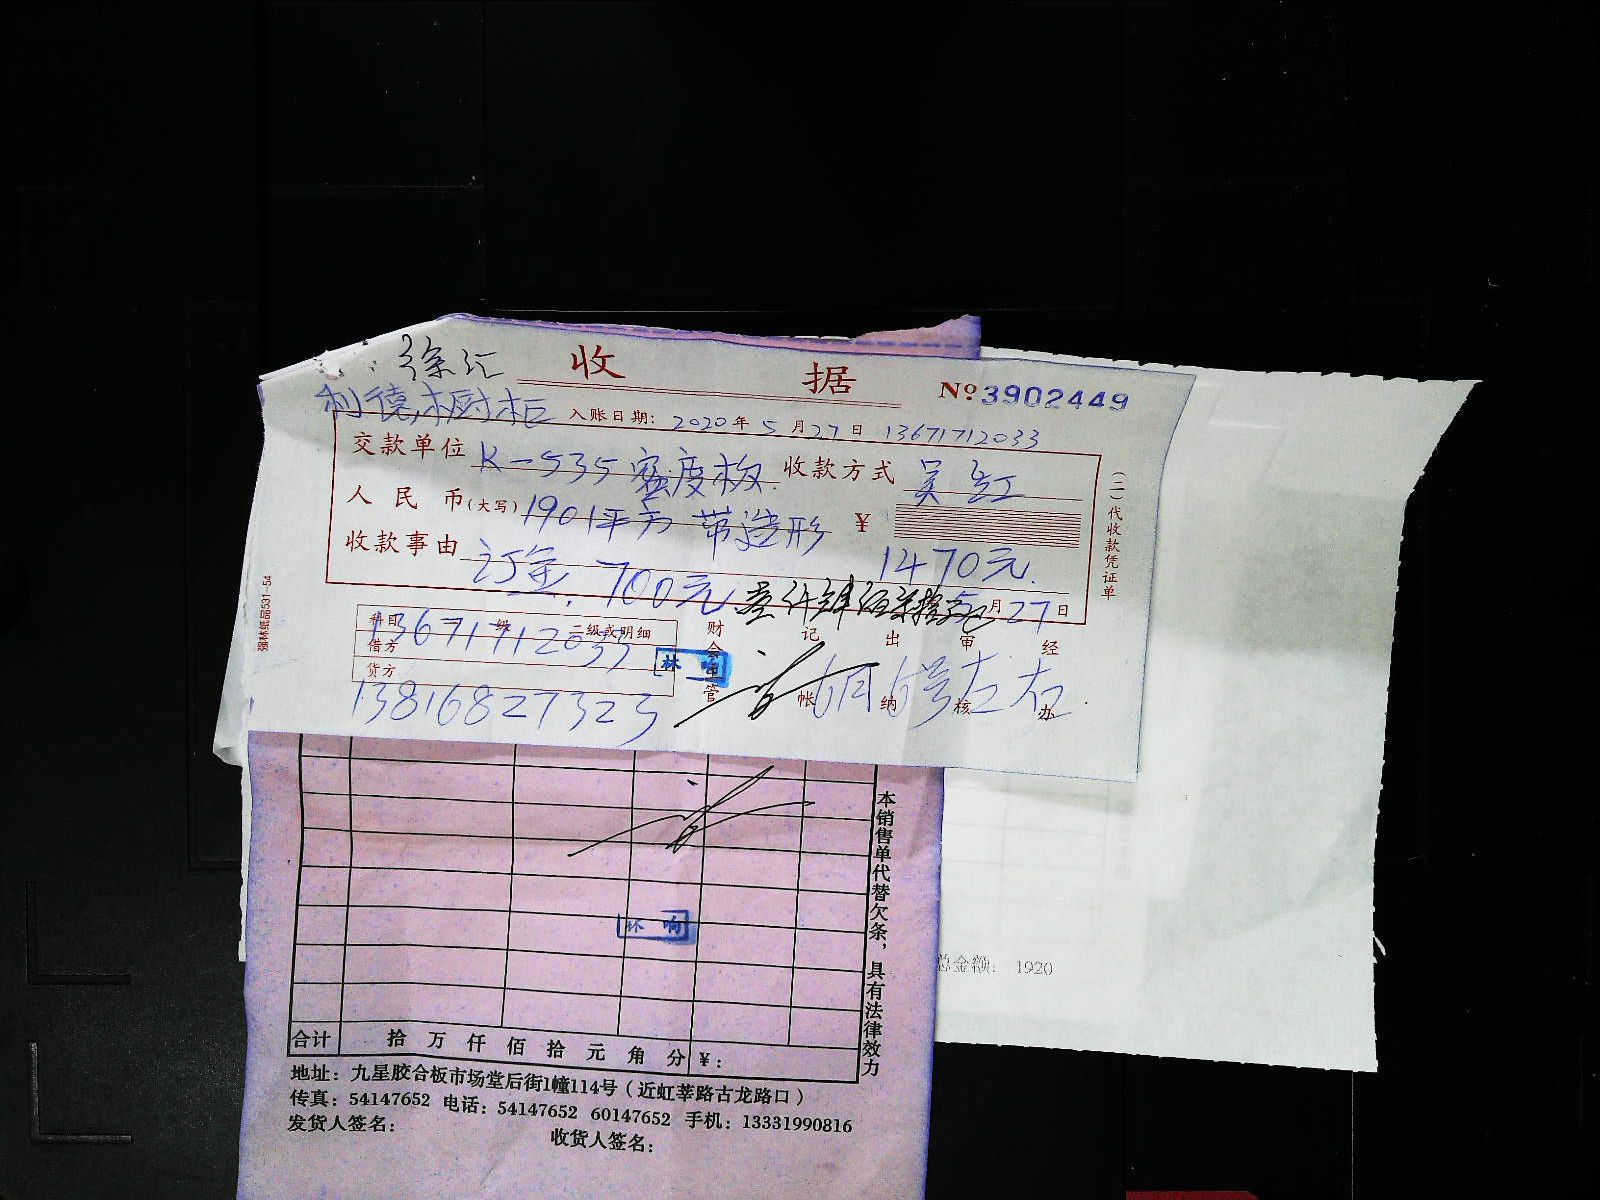 徐汇 收 据 No 3902449
利德橱柜 入账日期: 2020年 5月27日 13671712033
交款单位 K-535 密度板 收款方式 吴红
人民币(大写) 1901平方 带造形 ¥
1470元.
收款事由 订金. 700元 壹仟肆佰柒拾元 5月27日
(二)代收款凭证单
强林纸品531-54
科目 一级 二级或明细 财会主管 记帐 出纳 审核 经办
借方 13671712033
林 响
贷方
13816827323 6月6号左右
本销售单代替欠条，具有法律效力
林 响
总金额: 1920
合计 拾 万 仟 佰 拾 元 角 分 ¥:
地址: 九星胶合板市场堂后街1幢114号(近虹莘路古龙路口)
传真: 54147652 电话: 54147652 60147652 手机: 13331990816
发货人签名: 收货人签名: